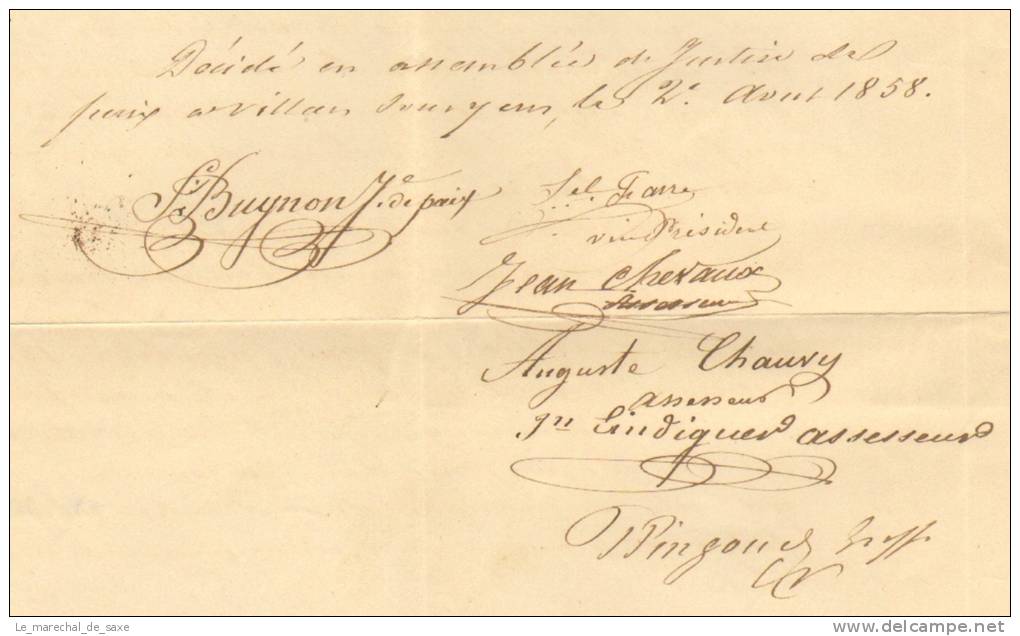 Décidé en assemblée de Justice de
paix à Villars le 2e Aout 1858.
Buynon J.e de paix
vice Président
Jean Chevaux
Assesseur
Auguste Chauvy
assesseur
Jn Lindiguer assesseur
Pingoud Greff
Le_marechal_de_saxe
www.delcampe.net